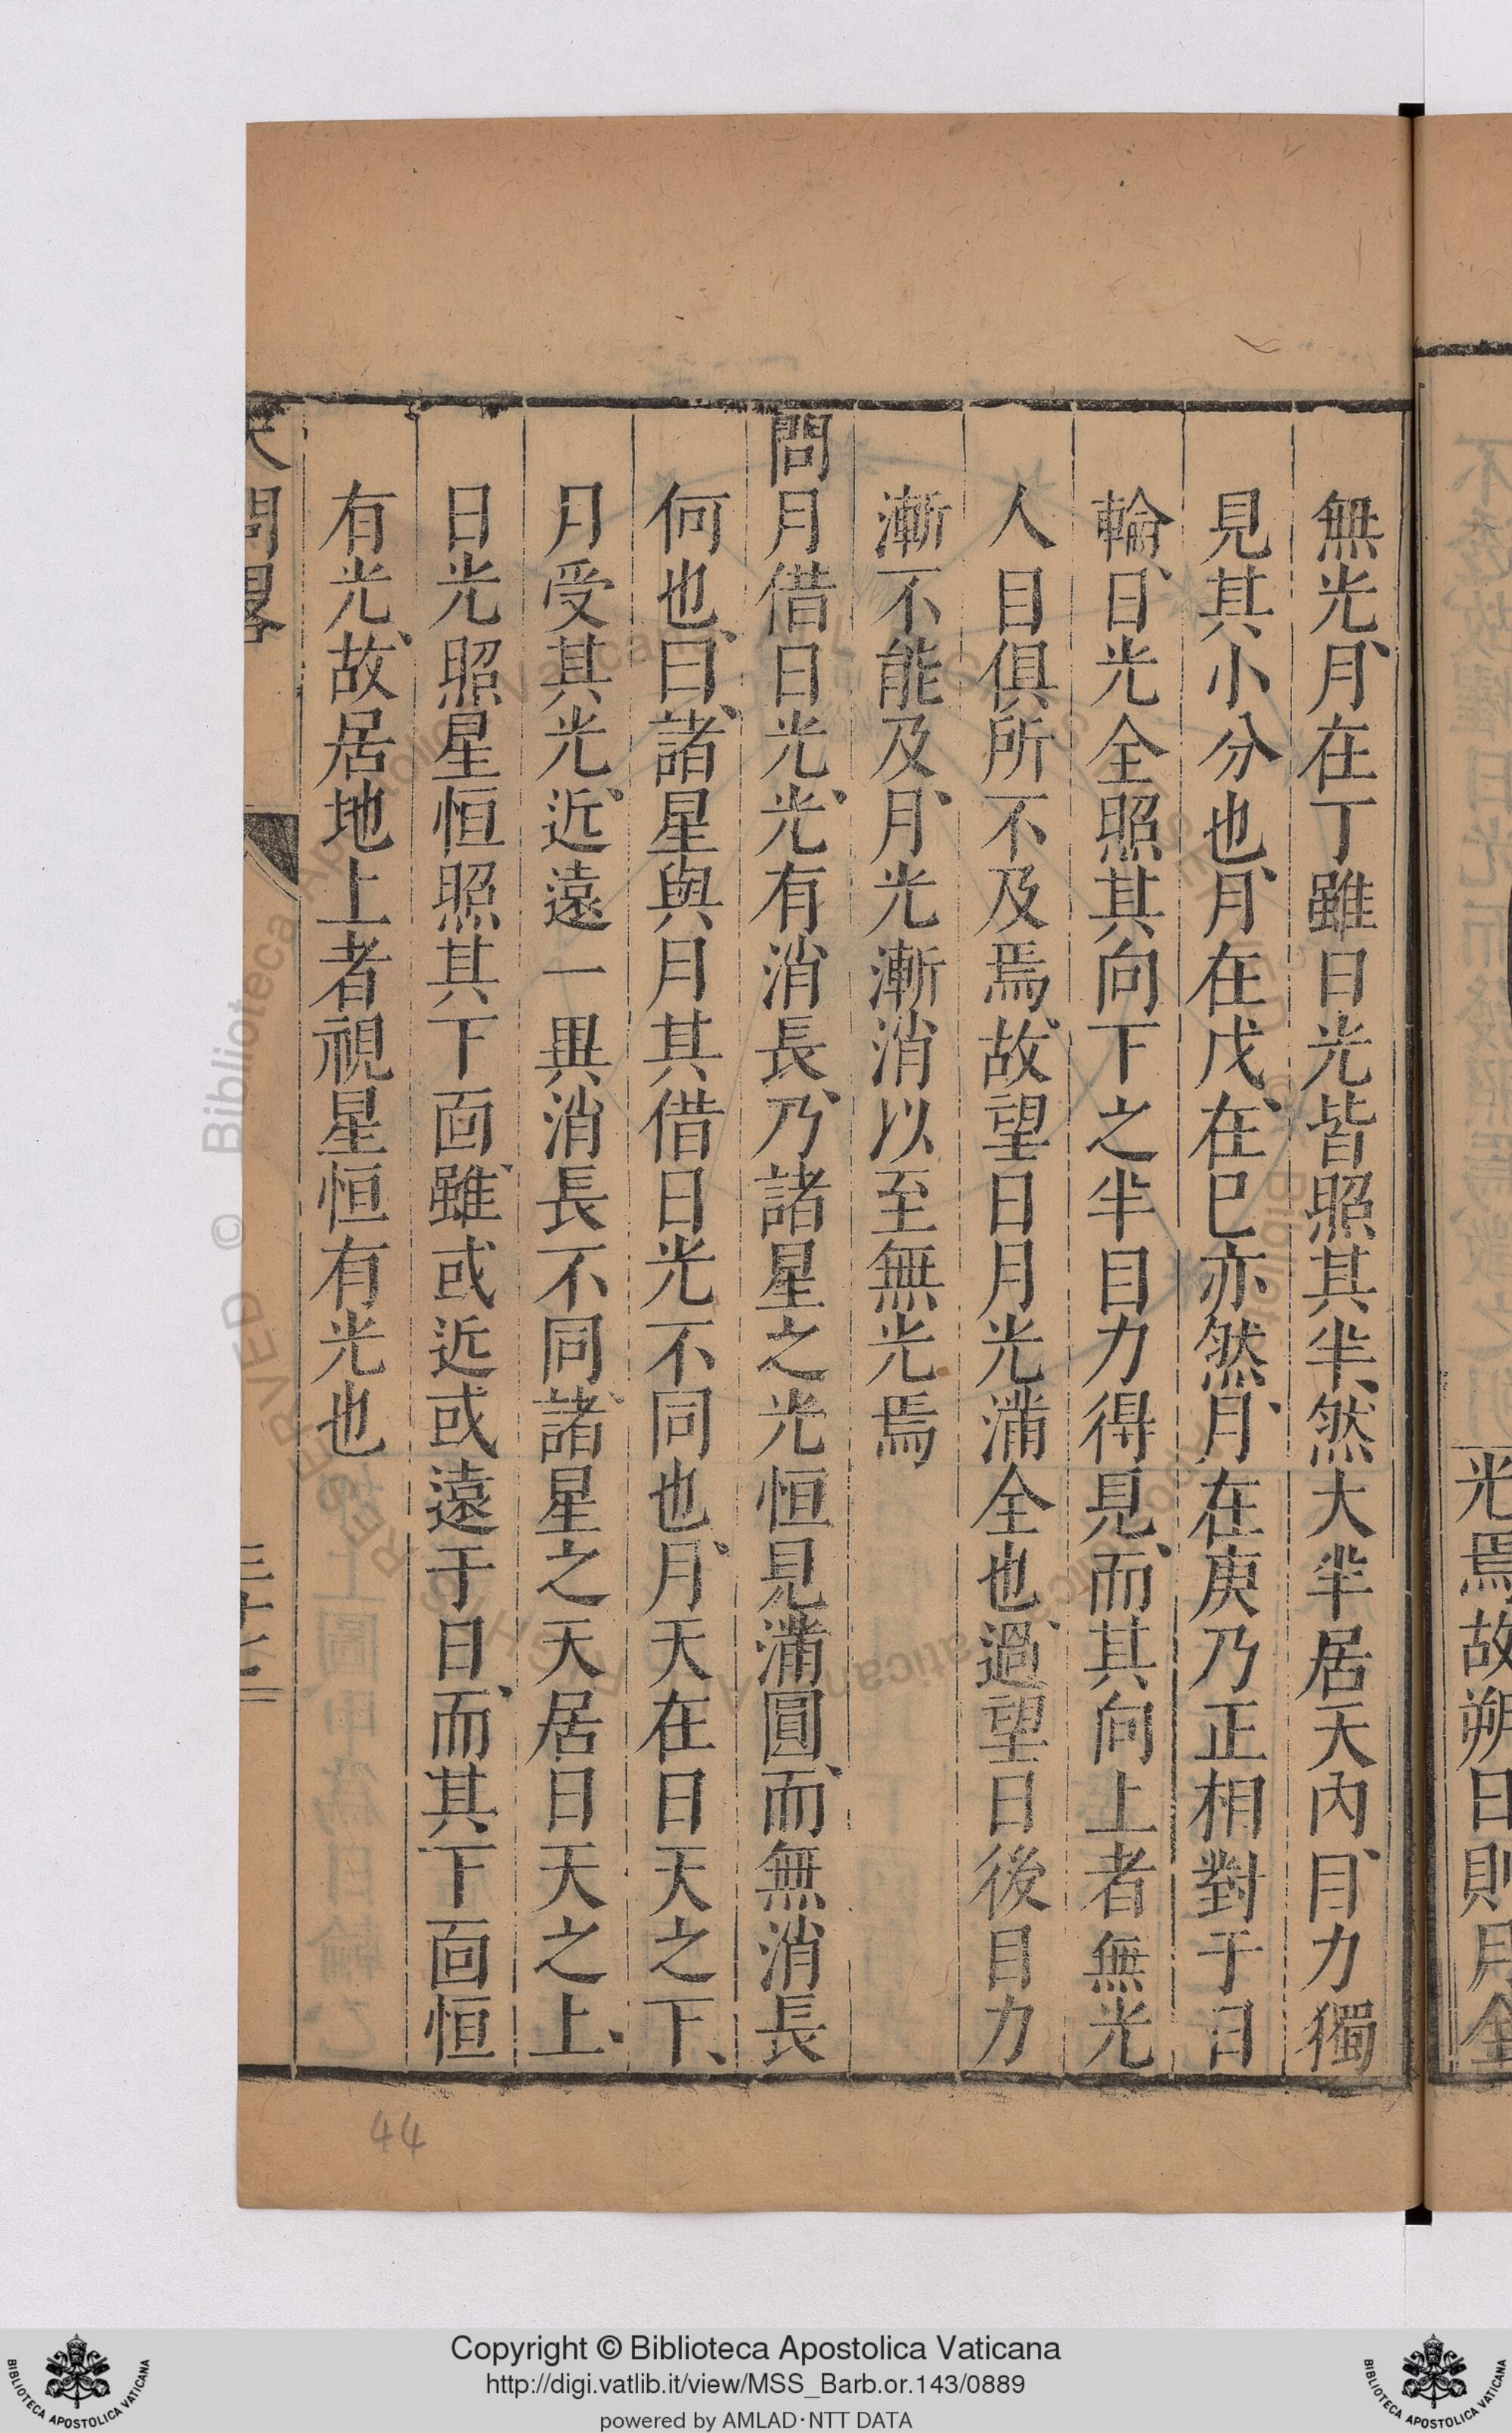 光焉故朔日則月全
無光月在丁雖日光皆照其半然大半居天內目力獨
見其小分也月在戊在巳亦然月在庚乃正相對于日
輪日光全照其向下之半目力得見而其向上者無光
人目俱所不及焉故望日月光滿全也過望日後目力
漸不能及月光漸消以至無光焉
問月借日光光有消長乃諸星之光恒見滿圓而無消長
何也曰諸星與月其借日光不同也月天在日天之下
月受其光近遠一異消長不同諸星之天居日天之上
日光照星恒照其下面雖或近或遠于日而其下面恒
有光故居地上者視星恒有光也
天問畧
44
Copyright © Biblioteca Apostolica Vaticana
http://digi.vatlib.it/view/MSS_Barb.or.143/0889
powered by AMLAD·NTT DATA
BIBLIOTECA APOSTOLICA VATICANA
BIBLIOTECA APOSTOLICA VATICANA